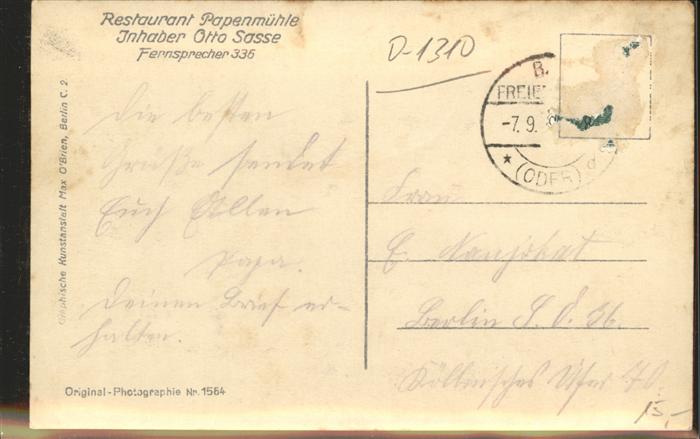 Restaurant Papenmühle
Inhaber Otto Sasse
Fernsprecher 336
D-1310
B.
FREIE
-7.9.
(ODER) d
Die besten
Grüße sendet
Euch Allen
Papa.
Deinen Brief er-
halten.
Frau
E.
Berlin S.O. 36.
Köllnisches Ufer 70.
15,-
Original-Photographie Nr. 1564
Graphische Kunstanstalt Max O'Brien, Berlin C. 2